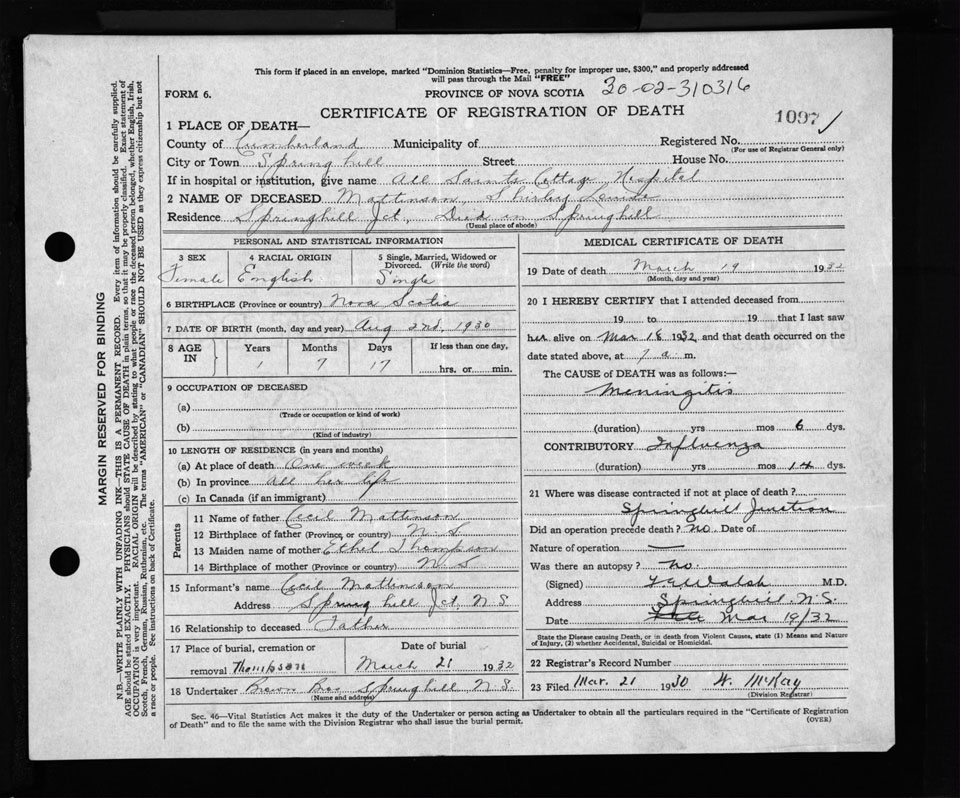 This form if placed in an envelope, marked "Dominion Statistics—Free, penalty for improper use, $300," and properly addressed
will pass through the Mail "FREE"
FORM 6. PROVINCE OF NOVA SCOTIA 30-02-310316
CERTIFICATE OF REGISTRATION OF DEATH 1097
1 PLACE OF DEATH—
County of Cumberland Municipality of Registered No.
(For use of Registrar General only)
City or Town Spring hill Street House No.
If in hospital or institution, give name All Saints Cottage Hospital
2 NAME OF DECEASED Mattinson, Shirley
Residence Springhill Jct, Died in Springhill
(Usual place of abode)
PERSONAL AND STATISTICAL INFORMATION
3 SEX 4 RACIAL ORIGIN 5 Single, Married, Widowed or
Divorced. (Write the word)
Female English Single
6 BIRTHPLACE (Province or country) Nova Scotia
7 DATE OF BIRTH (month, day and year) Aug 2nd, 1930
8 AGE IN Years Months Days If less than one day,
1 7 17 hrs. or min.
9 OCCUPATION OF DECEASED
(a)
(Trade or occupation or kind of work)
(b)
(Kind of industry)
10 LENGTH OF RESIDENCE (in years and months)
(a) At place of death One week
(b) In province All her life
(c) In Canada (if an immigrant)
Parents
11 Name of father Cecil Mattinson
12 Birthplace of father (Province or country) N. S
13 Maiden name of mother Ethel Thompson
14 Birthplace of mother (Province or country) N S
15 Informant's name Cecil Mattinson
Address Spring hill Jct, N S.
16 Relationship to deceased Father
17 Place of burial, cremation or Date of burial
removal Thompson March 21 1932
18 Undertaker Brown Bros Springhill N S.
(Name and address)
MEDICAL CERTIFICATE OF DEATH
19 Date of death March 19 1932
(Month, day and year)
20 I HEREBY CERTIFY that I attended deceased from
19 to 19 that I last saw
her alive on Mar 18 1932 and that death occurred on the
date stated above, at 7 a m.
The CAUSE of DEATH was as follows:—
Meningitis
(duration) yrs mos 6 dys.
CONTRIBUTORY Influenza
(duration) yrs mos 14 dys.
21 Where was disease contracted if not at place of death?
Springhill Junction
Did an operation precede death? no Date of
Nature of operation —
Was there an autopsy? no.
(Signed) Walsh M.D.
Address Springhill. N.S.
Date Mar 19/32
State the Disease causing Death, or in death from Violent Causes, state (1) Means and Nature
of Injury, (2) whether Accidental, Suicidal or Homicidal.
22 Registrar's Record Number
23 Filed Mar. 21 1930 W. McKay
(Division Registrar)
Sec. 46—Vital Statistics Act makes it the duty of the Undertaker or person acting as Undertaker to obtain all the particulars required in the "Certificate of Registration
of Death" and to file the same with the Division Registrar who shall issue the burial permit. (OVER)
MARGIN RESERVED FOR BINDING
N.B.—WRITE PLAINLY WITH UNFADING INK—THIS IS A PERMANENT RECORD. Every item of information should be carefully supplied.
AGE should be stated EXACTLY. PHYSICIANS should STATE CAUSE OF DEATH in plain terms, so that it may be properly classified. Exact statement of
OCCUPATION is very important. RACIAL ORIGIN will be described by stating to what people or race the deceased person belonged, whether English, Irish,
Scotch, French, German, Russian, Ruthenian, etc. The terms "AMERICAN" or "CANADIAN" SHOULD NOT BE USED as they express citizenship but not
a race or people. See instructions on back of Certificate.